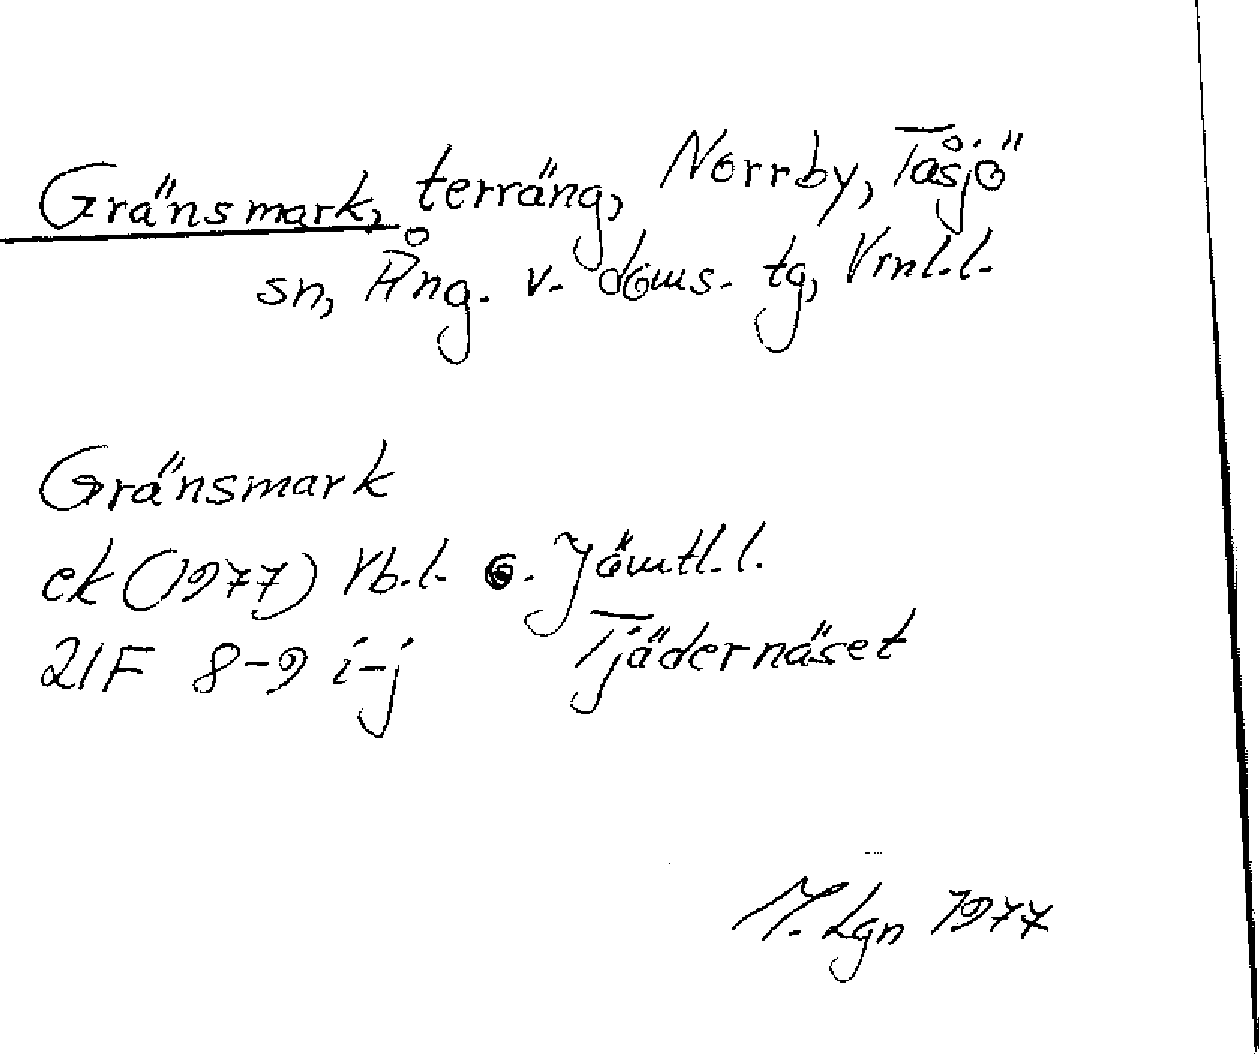 Gränsmark, terräng, Norrby, Tåsjö
sn, Ång. v. doms. tg, Vrnl.l.
Gränsmark
ek (1977) Vb.l. o. Jämtl.l.
21F 8-9 i-j Tjädernäset
M. Lgn 1977